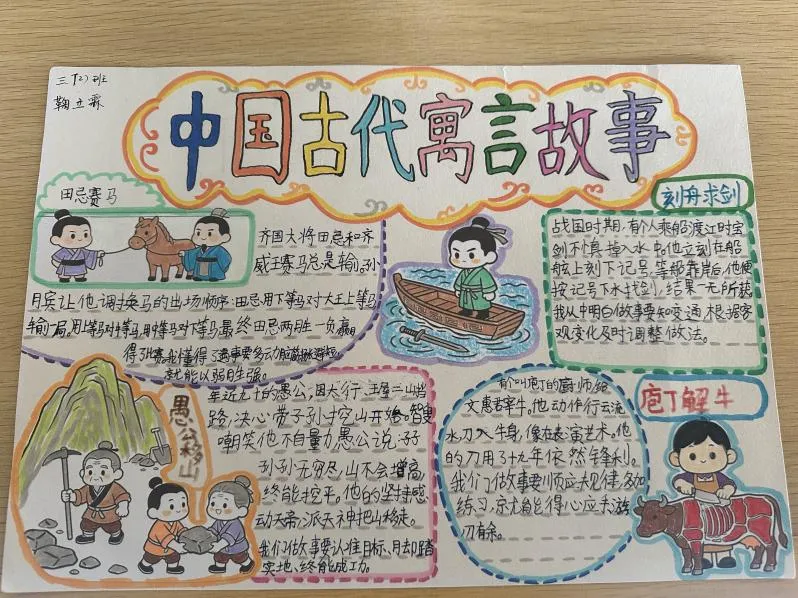 三(2)班
鞠立霖
中国古代寓言故事
田忌赛马
齐国大将田忌和齐
威王赛马总是输。孙
膑让他调换马的出场顺序:田忌用下等马对大王上等马
输一局。用上等马对中等马,用中等马对下等马最终田忌两胜一负赢
得比赛。我懂得了遇事要多动脑筋
就能以弱胜强。
刻舟求剑
战国时期,有人乘船渡江时宝
剑不慎掉入水中,他立刻在船
舷上刻下记号,等船靠岸,他便
按记号下水找剑,结果一无所获
我从中明白做事要知变通,根据客
观变化及时调整做法。
愚公移山
年近九十的愚公,因太行、王屋二山挡
路,决心带子孙挖山开始。智叟
嘲笑他不自量力愚公说:子子
孙孙无穷尽,山不会增高
终能挖平。他的坚持感
动天帝,派天神把山移走。
我们做事要认准目标、脚踏
实地、终能成功。
庖丁解牛
有个叫庖丁的厨师,给
文惠君宰牛。他动作行云流
水,刀入牛身,像在表演艺术。他
的刀用了十九年依然锋利。
我们做故事要顺应大规律,多加
练习,就能得心应手,游
刃有余。